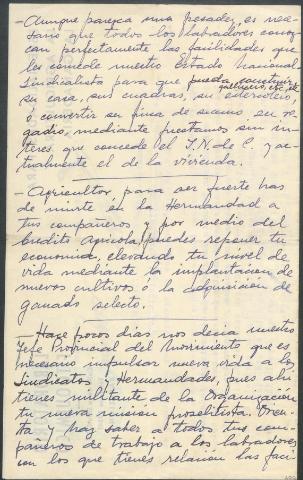 - Aunque parezca una pesadez, es nece-
sario que todos los labradores conoz-
can perfectamente las facilidades que
les concede nuestro Estado Nacional
Sindicalista para que pueda construir
gallinero, etc, etc
su casa, sus cuadras, su estercolero,
ó convertir su finca de secano, en re-
gadio, mediante prestamos sin in-
teres que concede el I.N. de C. y ac-
tualmente el de la vivienda.
- Agricultor, para ser fuerte has
de unirte en la Hermandad a
tus compañeros y por medio del
Credito Agricola, puedes reponer tu
economia, elevando tu nivel de
vida mediante la implantacion de
nuevos cultivos ó la adquisicion de
ganado selecto.
- Hace pocos dias nos decia nuestro
Jefe Provincial del Movimiento que es
necesario impulsar nueva vida a los
Sindicatos y Hermandades, pues ahi
tienes militante de la Organización
tu nueva mision proselitista. Orien-
ta y haz saber a todos tus com-
pañeros de trabajo a los labradores
con los que tienes relacion las faci-